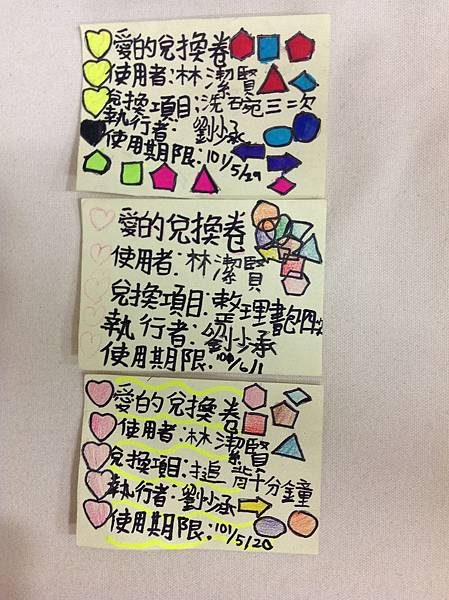 愛的兌換卷
使用者:林潔賢
兌換項目:洗碗三次
執行者:劉少承
使用期限:101/5/29
愛的兌換卷
使用者:林潔賢
兌換項目:整理書包
執行者:劉少承
使用期限:100/6/1
愛的兌換卷
使用者:林潔賢
兌換項目:搥背十分鐘
執行者:劉少承
使用期限:101/5/20